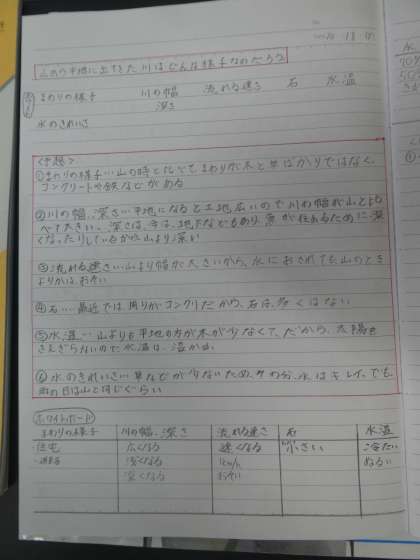 山から平地に出てきた川はどんな様子なのだろう
まわりの様子 川の幅 流れる速さ 石 水温
深さ
水のきれいさ
<予想>
①まわりの様子…山の時と比べてまわりが木と草ばかりではなく、
コンクリートや鉄などがある
②川の幅、深さ…平地になると土地広いので川の幅が山と比
べて大きい、深さは
くなったりしているから山より深い
③流れる速さ…山より幅が大きいから、水におされても山のとき
よりかはおそい
④石…最近では周りがコンクリだから、石は多くはない
⑤水温…山よりも平地の方が木が少なくて、だから、太陽を
さえぎらないので水温は、温かい。
⑥水のきれいさ…草などが少ないため、その分、水はキレイ、でも
雨の日は山と同じぐらい
ホワイトボード
まわりの様子 川の幅、深さ 流れる速さ 石 水温
住宅 広くなる 速くなる 小さい 冷たい
深くなる km/h ぬるい
深くなる おそい